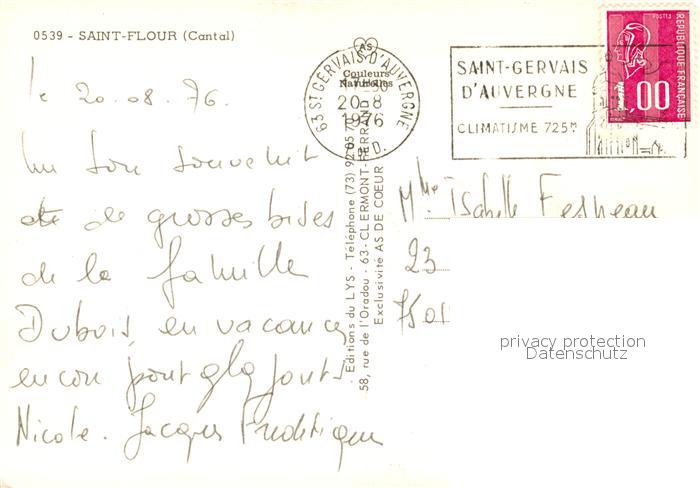 0539 - SAINT-FLOUR (Cantal)
le 20.08.76.
Un bon souvenir
et de grosses bises
de la famille
Dubois, en vacances
Nicole. Jacques Frédérique
AS
Couleurs
Naturelles
63 ST GERVAIS-D'AUVERGNE
20-8
1976
P.D.D.
SAINT-GERVAIS
D'AUVERGNE
CLIMATISME 725M
POSTES
REPUBLIQUE FRANÇAISE
1,00
Editions du LYS - Téléphone (73) 92
58, rue de l'Oradou - 63-CLERMONT-FERRAND
Exclusivité AS DE COEUR
Mlle Isabelle
23
privacy protection
Datenschutz